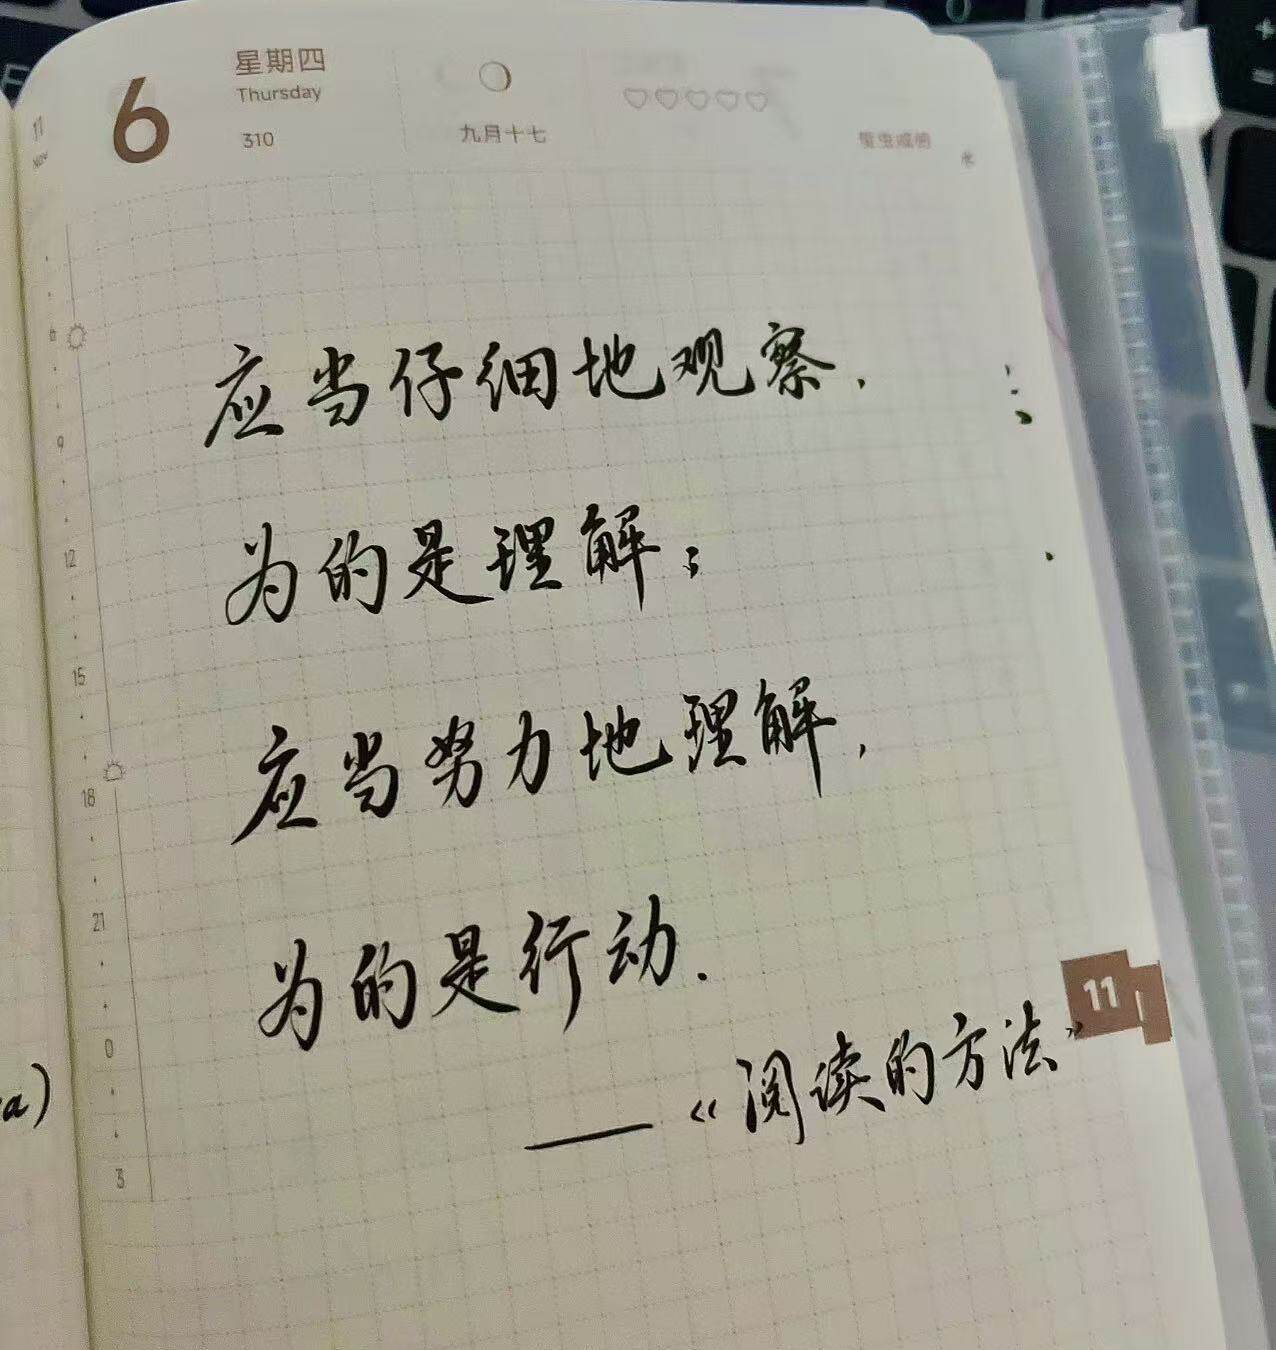 星期四
6
Thursday
310
九月十七
11
Nov
应当仔细地观察,
为的是理解;
应当努力地理解,
为的是行动.
——《阅读的方法》
11
6
9
12
15
18
21
0
3
a)